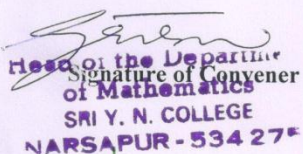 Head of the Departme
Signature of Convener
of Mathematics
SRI Y. N. COLLEGE
NARSAPUR - 534 27